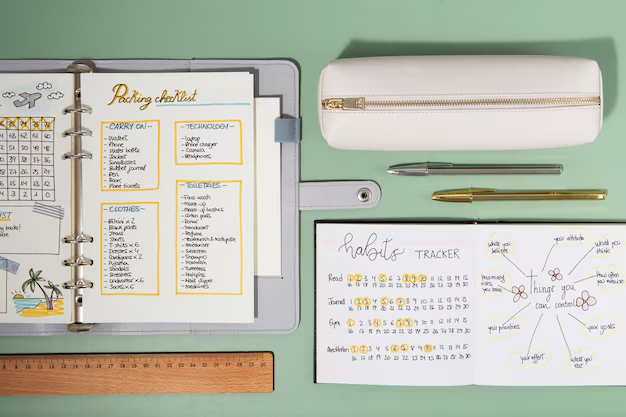 Packing checklist
- CARRY ON -
- Wallet
- Phone
- Water
- Jacket
- Sunglasses
- Bullet journal
- Pen
- Book
- Plane tickets
- TECHNOLOGY -
- Laptop
- Phone charger
- Camera
- Headphones
- CLOTHES -
- Bikini x 2
- Black pants
- Jeans
- Shorts
- T-shirts x 6
- Dresses x 4
- Cardigans x 2
- Pyjama
- Sandals
- Sneakers
- Underwear x 6
- Socks x 6
- TOILETRIES -
- Face wash
- Make-up
- Make-up brushes
- Cotton pads
- Razor
- Deodorant
- Perfume
- Toothbrush & toothpaste
- Sunscreen
- Shampoo
- Hairbrush
- Tweezers
- Hairties
- Nail clipper
- Medicines
LIST
habits TRACKER
Read 1 2 3 4 5 6 7 8 9 10 11 12 13 14 15
16 17 18 19 20 21 22 23 24 25 26 27 28 29 30
Journal 1 2 3 4 5 6 7 8 9 10 11 12 13 14 15
16 17 18 19 20 21 22 23 24 25 26 27 28 29 30
Gym 1 2 3 4 5 6 7 8 9 10 11 12 13 14 15
16 17 18 19 20 21 22 23 24 25 26 27 28 29 30
Meditation 1 2 3 4 5 6 7 8 9 10 11 12 13 14 15
16 17 18 19 20 21 22 23 24 25 26 27 28 29 30
things you
can control
your attitude
what you think
how often you exercise
your goals
what you eat
your effort
your priorities
how many risks you take
what you believe